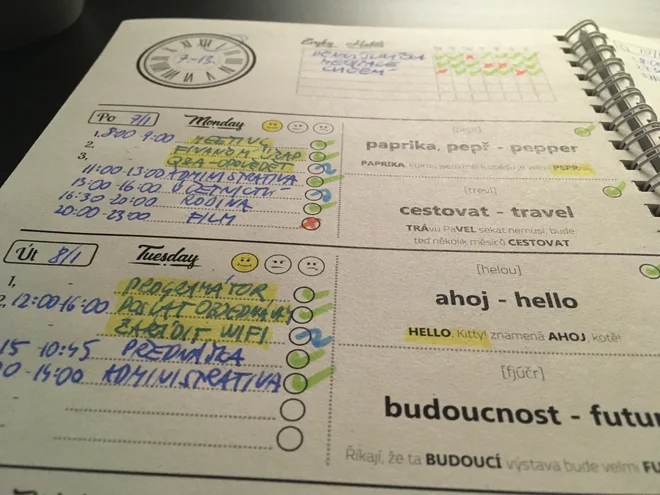 XII
7.-13.
Zvyky Habits
MEDITACE
CVIČENÍ
Po 7/1 Monday
1. 8:00 9:00 MEETING
2. FINANČNÍ ÚŘAD
3. Q&A - ODPOVĚDĚT
11:00-13:00 ADMINISTRATIVA
13:00-16:00 ÚČETNICTVÍ
16:30-20:00 RODINA
20:00-23:00 FILM
Út 8/1 Tuesday
1, PROGRAMÁTOR
2, 12:00-16:00 POSLAT OBJEDNÁVKY
ZAŘÍDIT WIFI
15 10:45 PŘEDNÁŠKA
0-14:00 ADMINISTRATIVA
[pepr]
paprika, pepř - pepper
PAPRIKA,
[trevl]
cestovat - travel
TRÁvu PaVEL sekat nemusí, bude
teď několik měsíců CESTOVAT
[helou]
ahoj - hello
HELLO, Kitty! znamená AHOJ, kotě!
[fjúčr]
budoucnost - futur
Říkají, že ta BUDOUCÍ výstava bude velmi FU